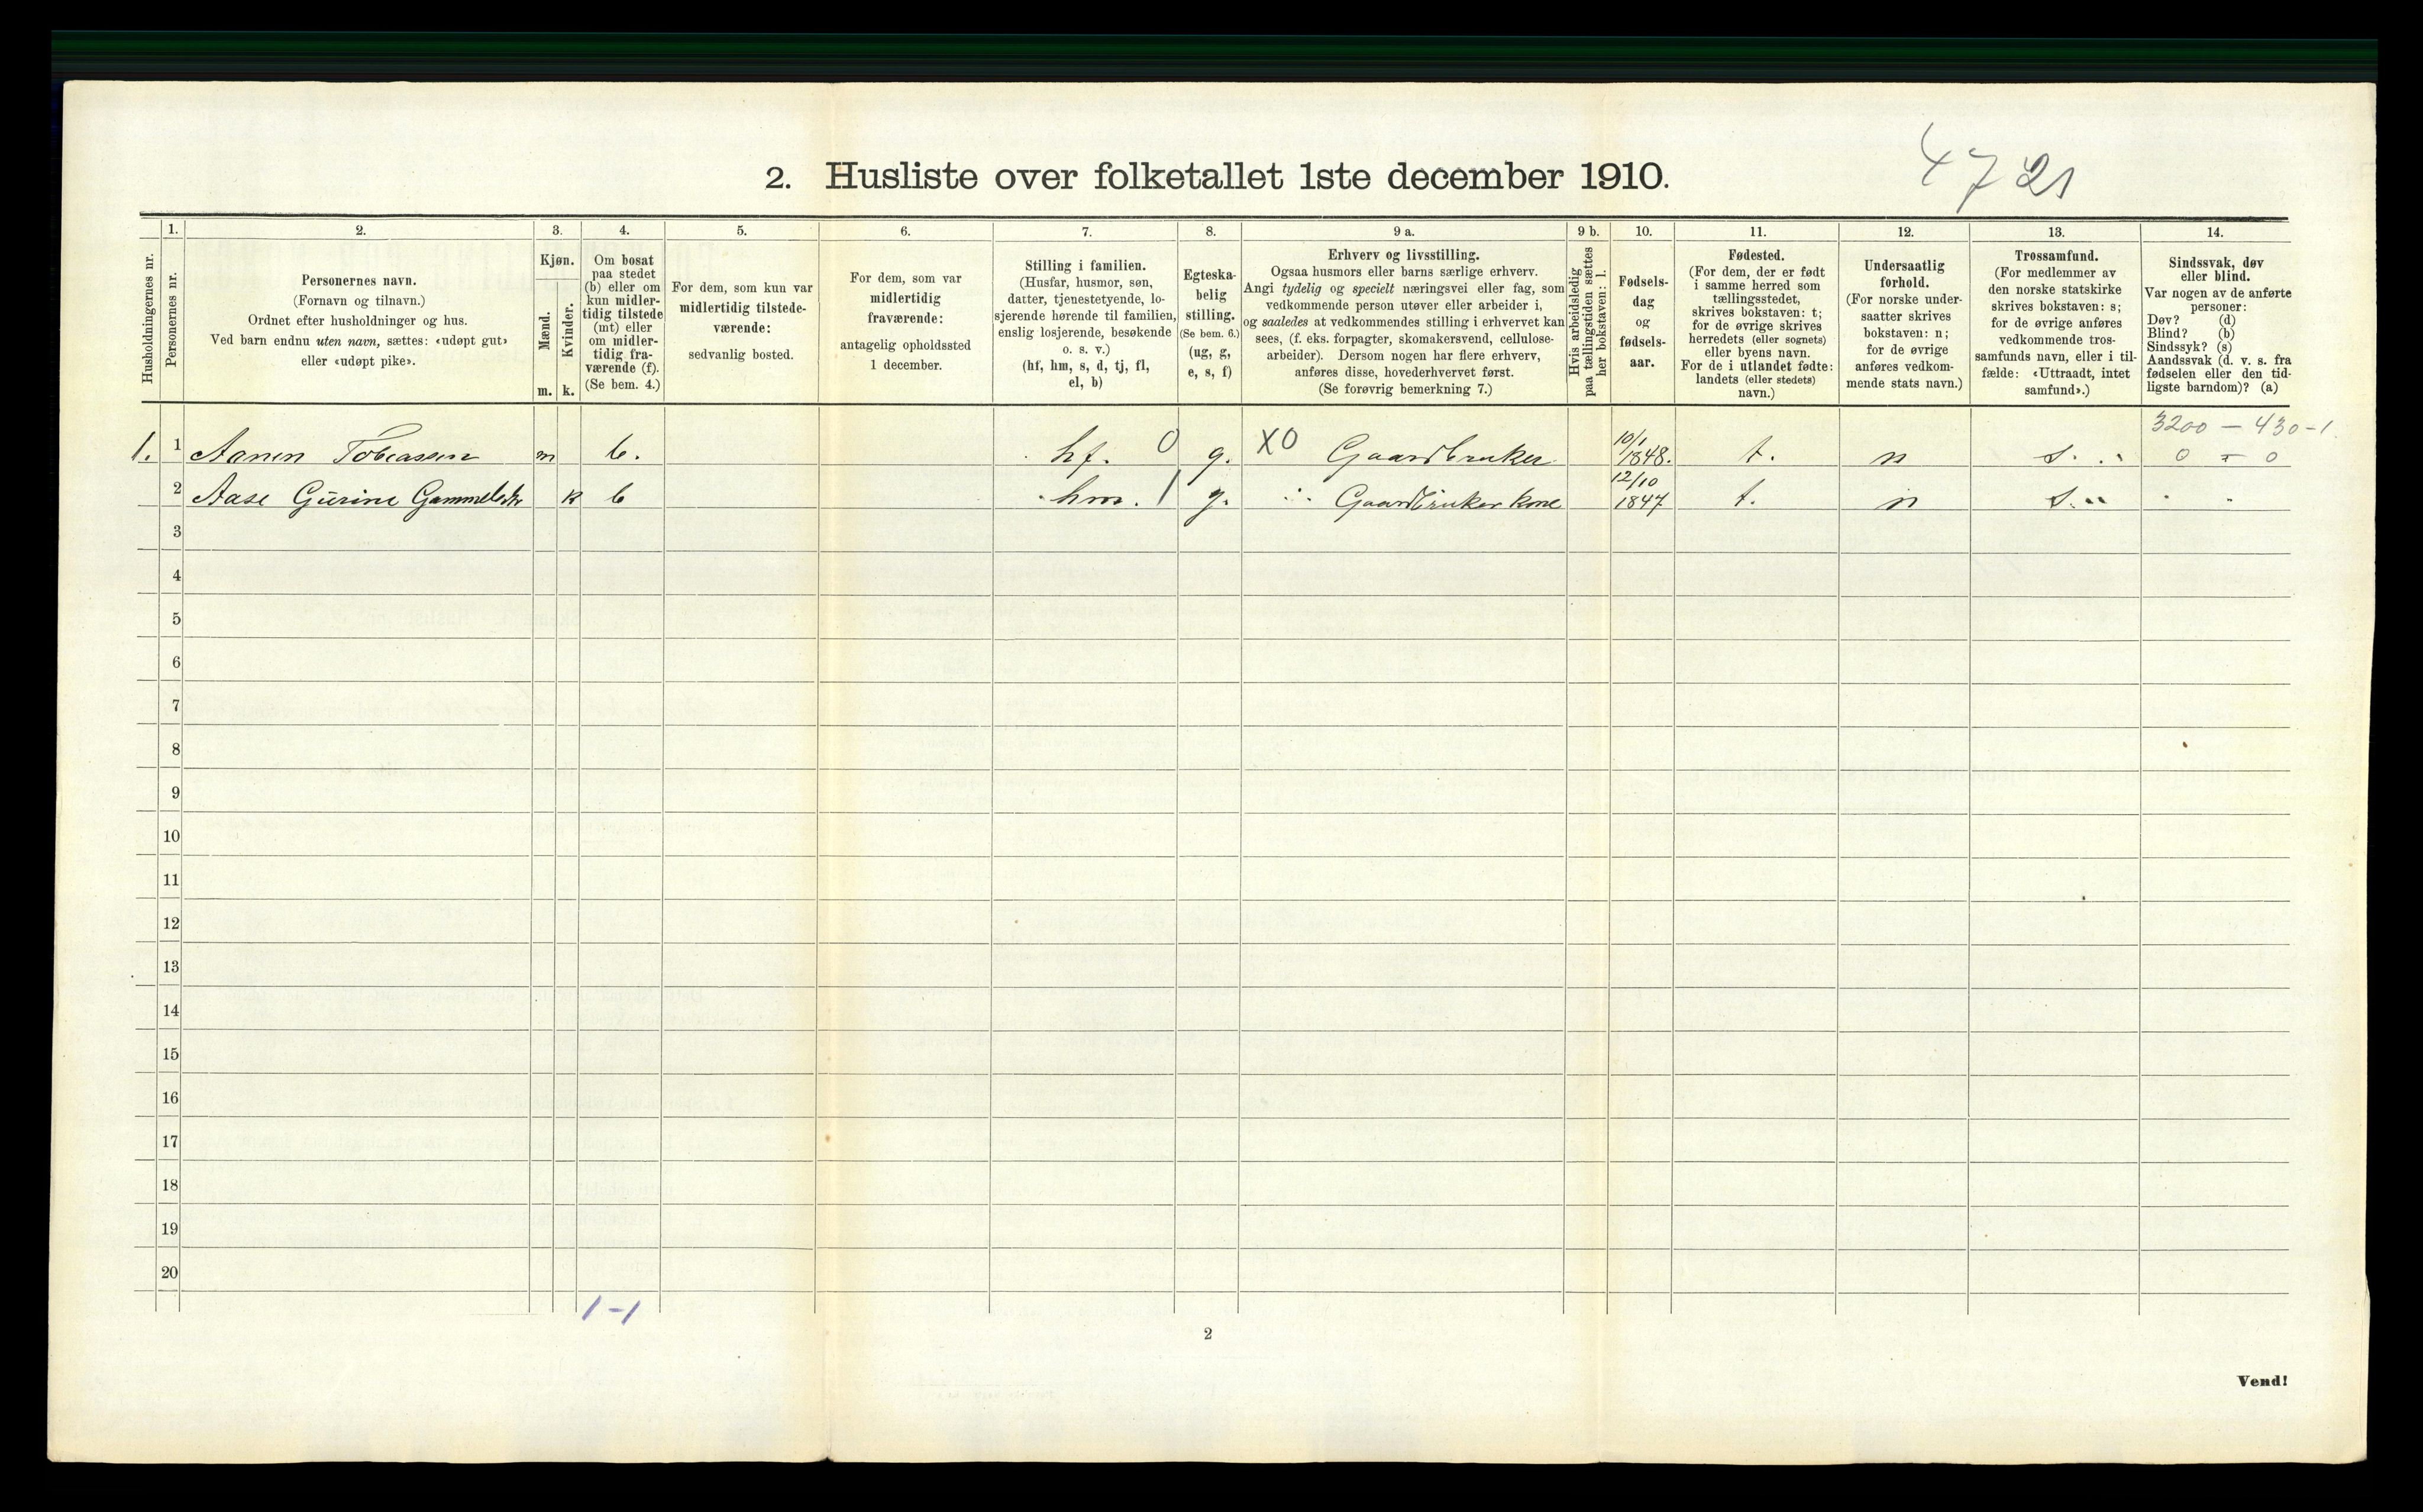 4721
2. Husliste over folketallet 1ste december 1910.
Husholdningernes nr.
1. Personernes nr.
2. Personernes navn.
(Fornavn og tilnavn.)
Ordnet efter husholdninger og hus.
Ved barn endnu uten navn, sættes: «udøpt gut»
eller «udøpt pike».
3. Kjøn.
Mænd. m.
Kvinder. k.
4. Om bosat
paa stedet
(b) eller om
kun midler-
tidig tilstede
(mt) eller
om midler-
tidig fra-
værende (f).
(Se bem. 4.)
5. For dem, som kun var
midlertidig tilstede-
værende:
sedvanlig bosted.
6. For dem, som var
midlertidig
fraværende:
antagelig opholdssted
1 december.
7. Stilling i familien.
(Husfar, husmor, søn,
datter, tjenestetyende, lo-
sjerende hørende til familien,
enslig losjerende, besøkende
o. s. v.)
(hf, hm, s, d, tj, fl,
el, b)
8. Egteska-
belig
stilling.
(Se bem. 6.)
(ug, g,
e, s, f)
9 a. Erhverv og livsstilling.
Ogsaa husmors eller barns særlige erhverv.
Angi tydelig og specielt næringsvei eller fag, som
vedkommende person utøver eller arbeider i,
og saaledes at vedkommendes stilling i erhvervet kan
sees, (f. eks. forpagter, skomakersvend, cellulose-
arbeider). Dersom nogen har flere erhverv,
anføres disse, hovederhvervet først.
(Se forøvrig bemerkning 7.)
9 b. Hvis arbeidsledig
paa tællingstiden sættes
her bokstaven: l.
10. Fødsels-
dag
og
fødsels-
aar.
11. Fødested.
(For dem, der er født
i samme herred som
tællingsstedet,
skrives bokstaven: t;
for de øvrige skrives
herredets (eller sognets)
eller byens navn.
For de i utlandet fødte:
landets (eller stedets)
navn.)
12. Undersaatlig
forhold.
(For norske under-
saatter skrives
bokstaven: n;
for de øvrige
anføres vedkom-
mende stats navn.)
13. Trossamfund.
(For medlemmer av
den norske statskirke
skrives bokstaven: s;
for de øvrige anføres
vedkommende tros-
samfunds navn, eller i til-
fælde: «Uttraadt, intet
samfund».)
14. Sindssvak, døv
eller blind.
Var nogen av de anførte
personer:
Døv? (d)
Blind? (b)
Sindssyk? (s)
Aandssvak (d. v. s. fra
fødselen eller den tid-
ligste barndom)? (a)
3200 - 430-1
1. 1 Aanen Tobiassen m b. hf. 0 g. X0 Gaardbruker 10/1 1848. t. n s. 0 = 0
2 Aase Gurine Gammelsdtr k b hm. 1 g. Gaardbruker kone 12/10 1847 t. n s.
3
4
5
6
7
8
9
10
11
12
13
14
15
16
17
18
19
20
1-1
2
Vend!